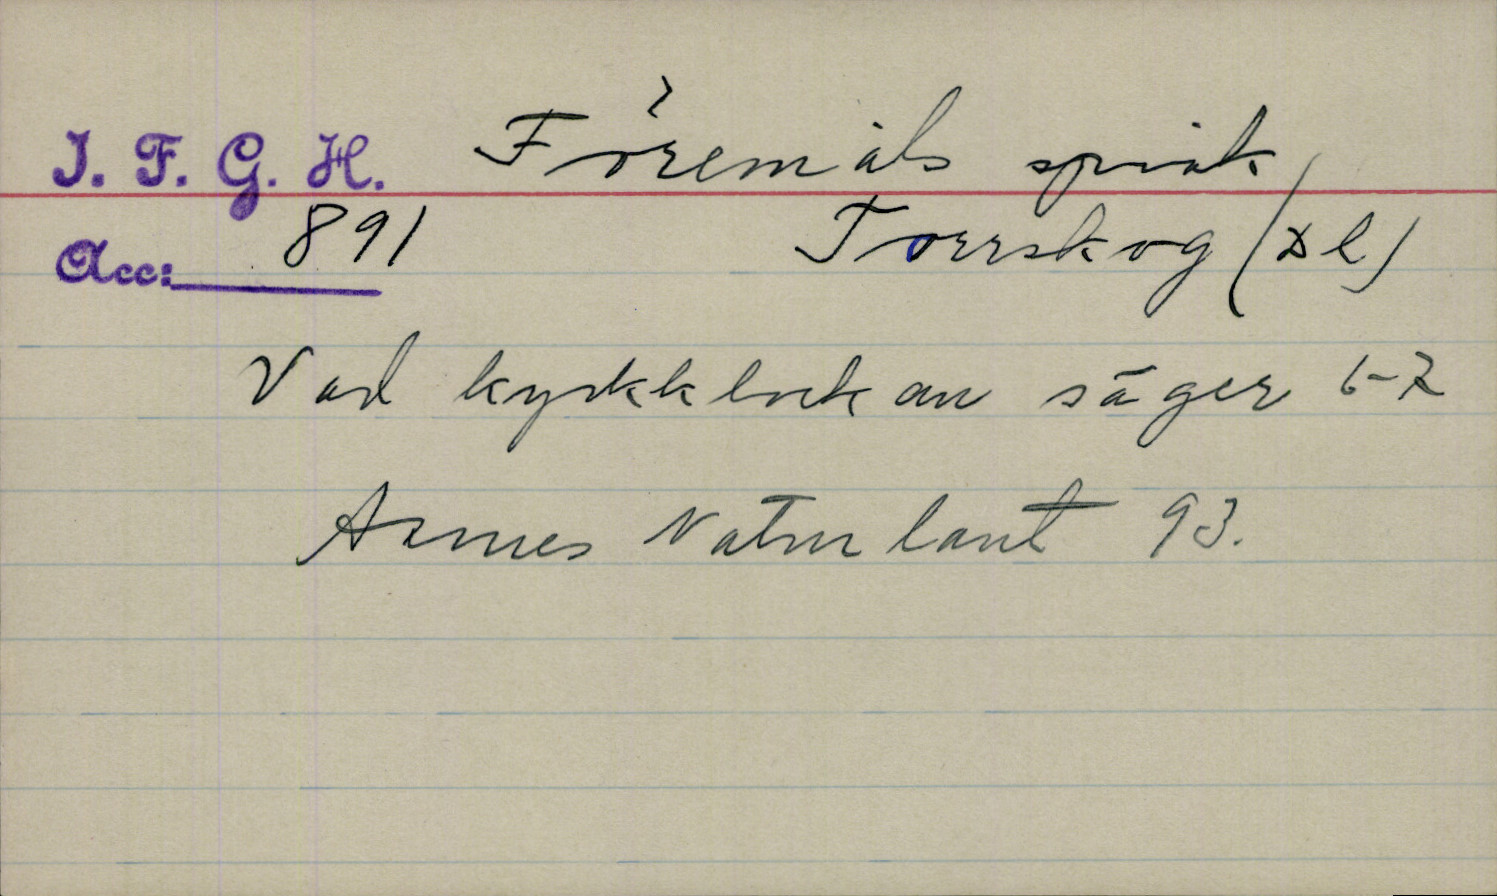 I. F. G. H. Föremåls språk
Acc: 891 Torrskog (Dl)
Vad kyrkklockan säger 6-7
Annes Naturlaut 93.